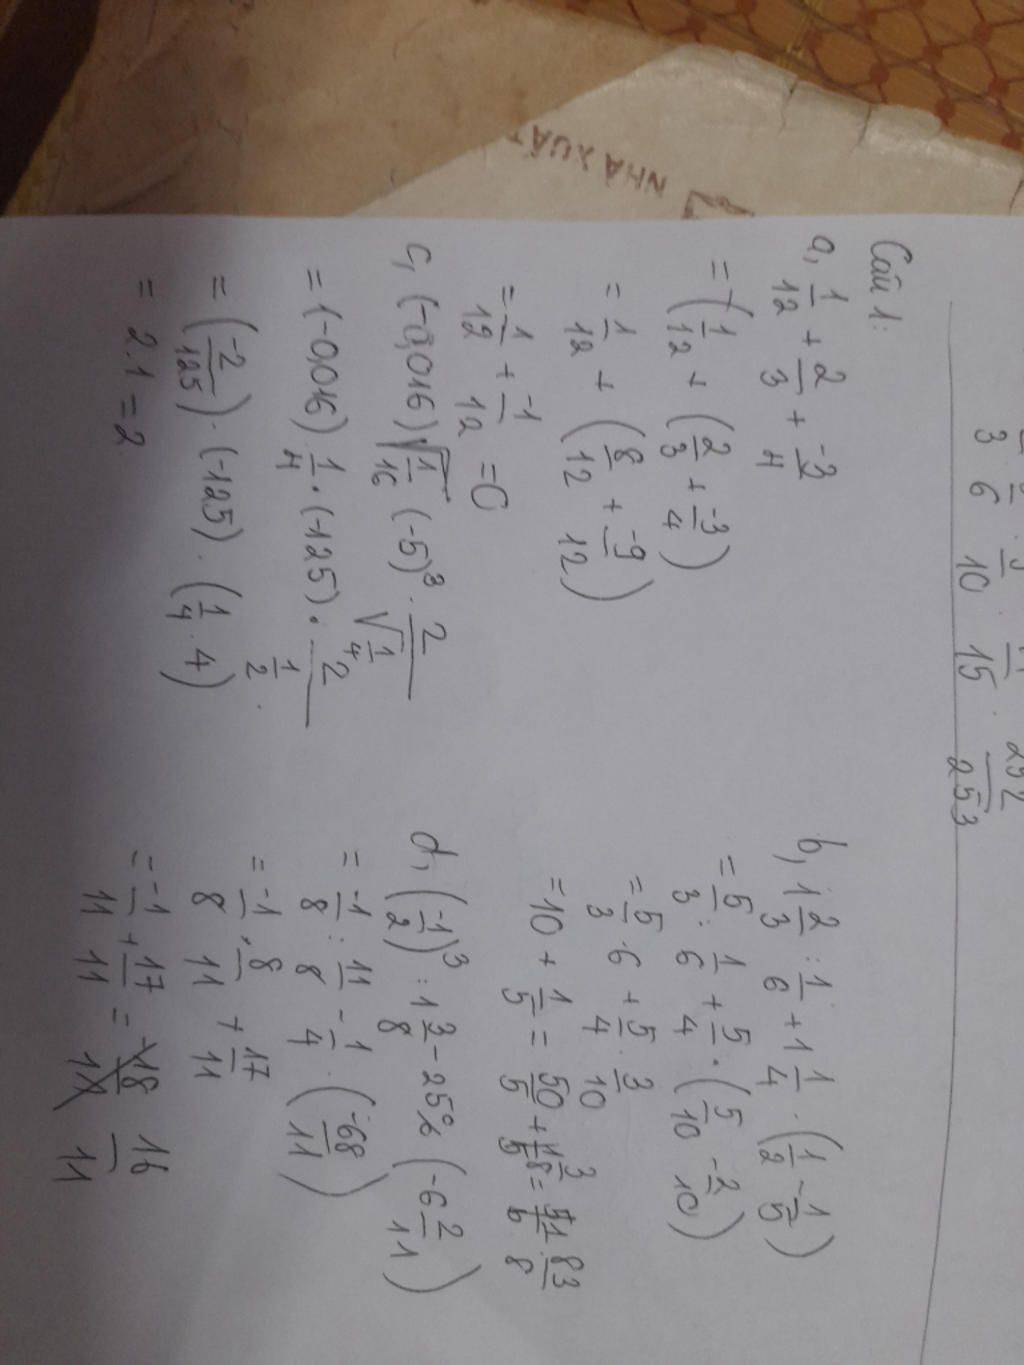 3 6 10 15 253
NHÀ XUẤT
Câu 1:
a, 1/12 + 2/3 + -3/4
= (1/12 + (2/3 + -3/4)
= 1/12 + (8/12 + -9/12)
= 1/12 + -1/12 = 0
c, (-0,016) √1/16 (-5)³ . 2/√1/4
= (-0,016) 1/4 . (-125) . 2/1/2
= (-2/125) . (-125) . (1/4 . 4)
= 2.1 = 2
b, 1 2/3 : 1/6 + 1 1/4 . (1/2 - 1/5)
= 5/3 : 1/6 + 5/4 . (5/10 - 2/10)
= 5/3 . 6 + 5/4 . 3/10
= 10 + 1/5 = 50/5 + 3/8 = 83/8
d, (-1/2)³ : 1 3/8 - 25% (-6 2/11)
= -1/8 : 11/8 - 1/4 . (-68/11)
= -1/8 . 8/11 + 17/11
= -1/11 + 17/11 = -18/11 16/11